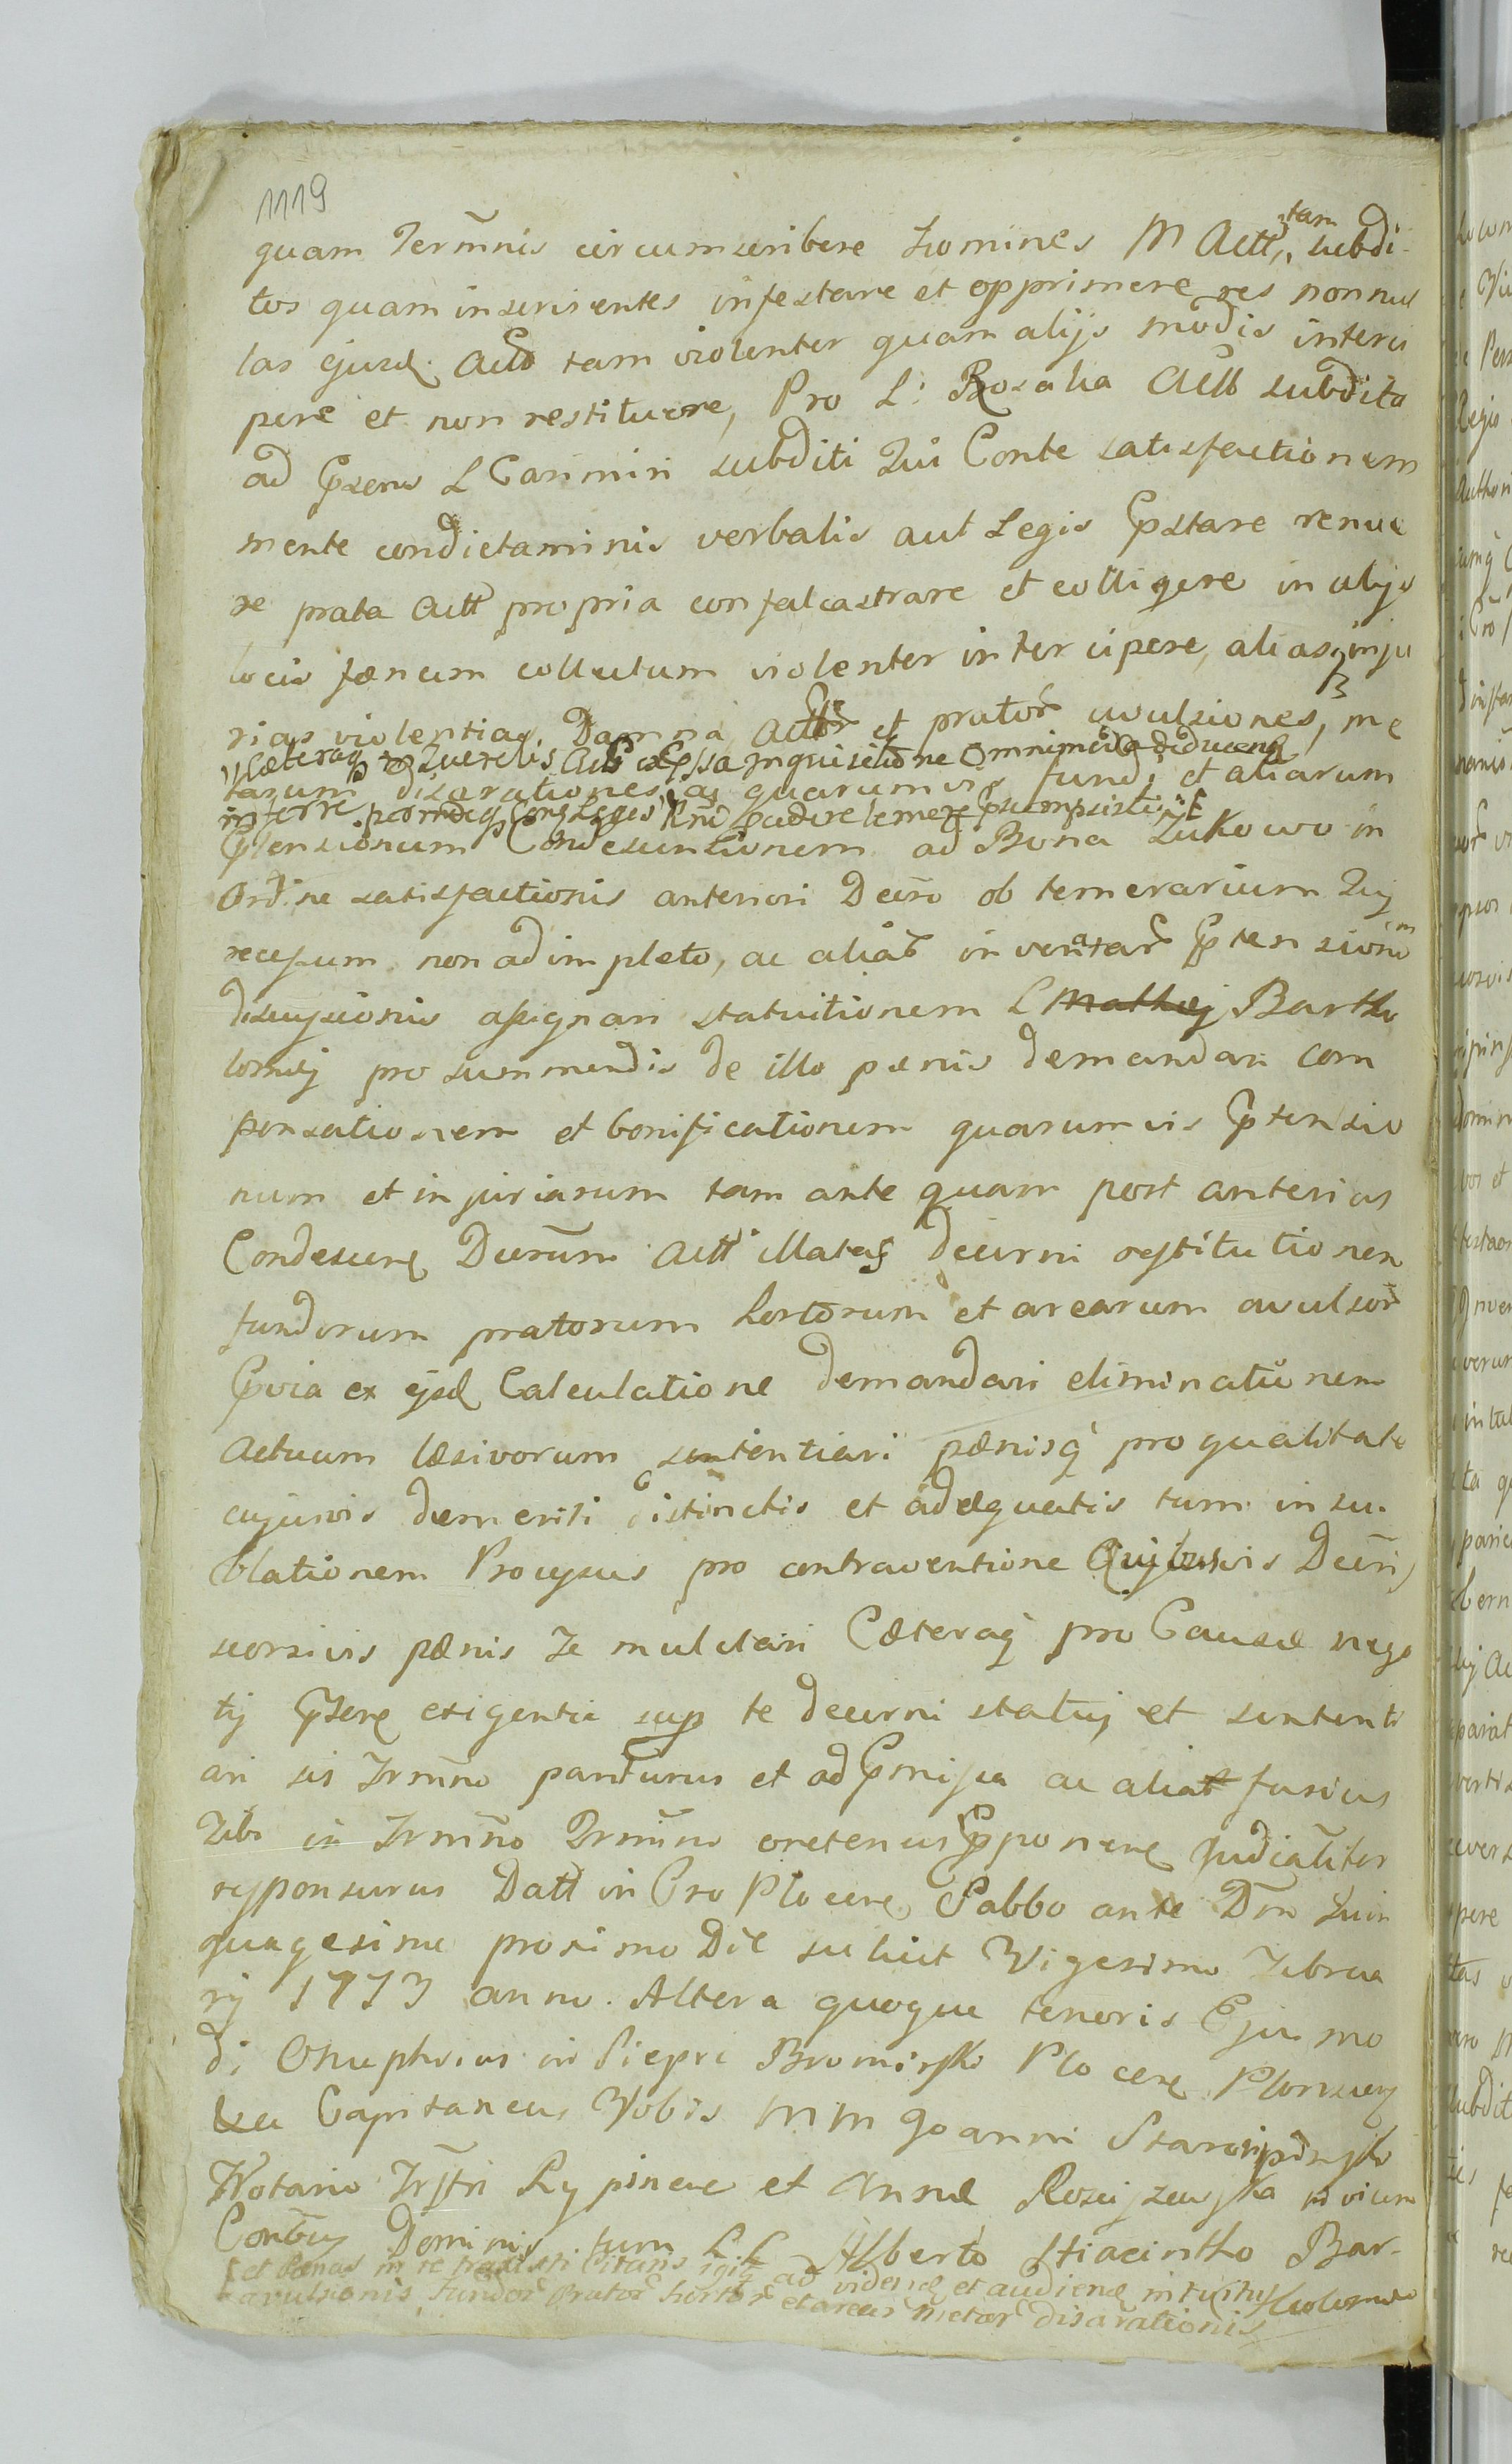 1119
quam Termnis circumscribere homines M Actt, tam subdi-
tos quam inservientes infestare et opprimere res nonnul
las ejusd. Actt tam violenter quam alijs modis interci
pere et non restituere, Pro L: Rosalia Actt subdita
ad Psens L Casimiri subditi Tui Conte satisfactionem
mente condictaminis verbalis aut Legis Pstare renue
re prata Actt propria confalcastrare et colligere in alijs
locis fœnum collectum violenter intercipere, alias inju
rias violentias, Damna Acttr et prator avulsiones, me
Cæteraq ex Querelis Actt exssa Inquisitione Omnimode deducend
tarum disarationes, ac quarumvis fundi et aliarum
inferre
Ptensionum Condescensionem ad Bona Zukowo in
Ordine satisfactionis anteriori Decro ob temerarium Tuj
recessum non adimpleto, ac aliar inventar Ptensionum
discussionis assignari statuitionem L Mathej Bartho
lomej pro summendis de illo pœnis demandari com
pensationem et bonificationem quarumvis Ptensio
num et injuriarum tam ante quam post anterius
Condescens Decrum Actt illatas decerni restitutionem
fundorum pratorum hortorum et arearum avulsor
Pvia ex ejsd Calculatione demandari eliminationem
Actuum læsivorum sententiari pœnisq pro qualitate
cujusvis demeriti distinctis et adæquatis tum in su-
blationem Processus pro contraventione Cujusvis Decri
seorsivis pœnis Te mulctari Cæteraq pro Causæ nego
tij Psens exigentia sup te decerni statuj et sententi
ari sis Trmno pariturus et ad Pmissa ac aliar fusius
Tibi in Trmno Trmno oretenus Pponens Judicialiter
responsurus Datt in Cro Plocen Sabbo ante Dm Quin
quagesimæ proximo Die scilicet Vigesima Febrúa
rij 1773 anno. Altera quoque tenoris Ejusmo
di Onuphrius in Siepre Bromirski Plocen Plonscen
Capitaneus Vobis MM Joanni Starorypinski
Notario Trstri Rypinen et Annæ Rosciszewska invicem
Contbus Dominis tum LL Alberto Hiacintho Bar-
tholomeo
et Pœnas in re traxisti Citaris igitr ad vidend et audiend intuitu
avulsionis fundor Prator hortor et areas metar disarationis